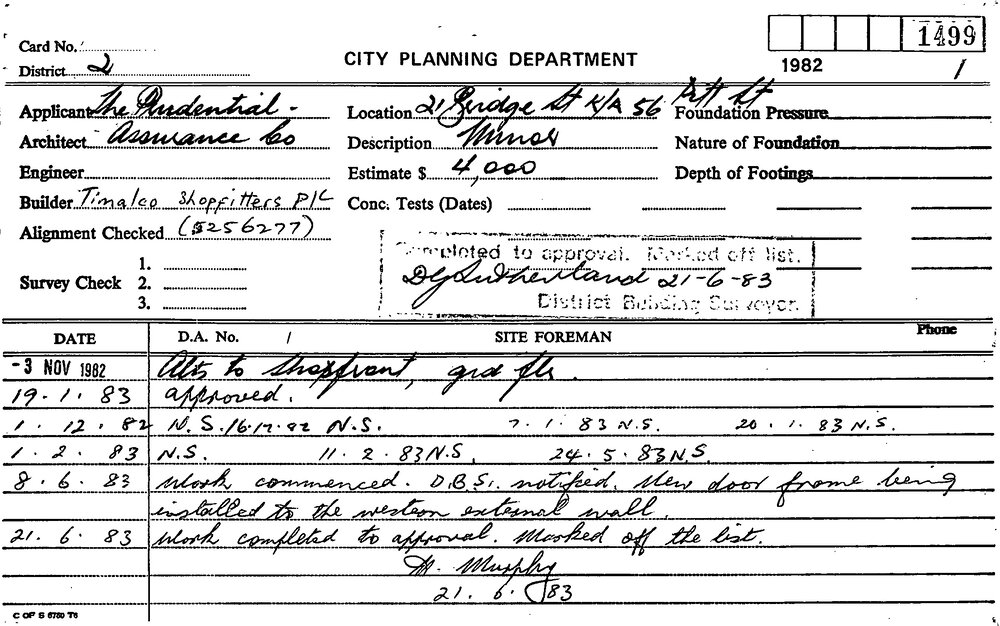 1499
Card No.
CITY PLANNING DEPARTMENT
District 2
1982 /
Applicant The Prudential - Location 21 Bridge St K/A 56 Pitt St Foundation Pressure
Architect Assurance Co Description Minor Nature of Foundation
Engineer Estimate $ 4,000 Depth of Footings
Builder Tinalco Shopfitters P/L Conc. Tests (Dates)
Alignment Checked (5256277)
Completed to approval. Marked off list.
1.
Survey Check 2. DG Sutherland 21-6-83
3. District Building Surveyor.
DATE D.A. No. / SITE FOREMAN Phone
-3 NOV 1982 Alts to shopfront, grd flr.
19.1.83 approved.
1.12.82 N.S. 16.12.82 N.S. 7.1.83 N.S. 20.1.83 N.S.
1.2.83 N.S. 11.2.83 N.S. 24.5.83 N.S.
8.6.83 Work commenced. D.B.S. notified. New door frame being
installed to the western external wall.
21.6.83 Work completed to approval. Marked off the list.
M. Murphy
21.6.83
C OF S 6780 T6